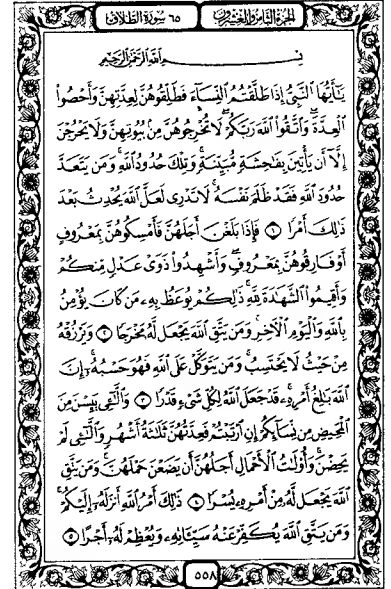 الجزء الثامن والعشرون ٦٥ سورة الطلاق
بِسْمِ اللَّهِ الرَّحْمَٰنِ الرَّحِيمِ
يَـٰٓأَيُّهَا ٱلنَّبِىُّ إِذَا طَلَّقْتُمُ ٱلنِّسَآءَ فَطَلِّقُوهُنَّ لِعِدَّتِهِنَّ وَأَحْصُوا۟
ٱلْعِدَّةَ ۖ وَٱتَّقُوا۟ ٱللَّهَ رَبَّكُمْ ۖ لَا تُخْرِجُوهُنَّ مِنۢ بُيُوتِهِنَّ وَلَا يَخْرُجْنَ
إِلَّآ أَن يَأْتِينَ بِفَـٰحِشَةٍ مُّبَيِّنَةٍ ۚ وَتِلْكَ حُدُودُ ٱللَّهِ ۚ وَمَن يَتَعَدَّ
حُدُودَ ٱللَّهِ فَقَدْ ظَلَمَ نَفْسَهُۥ ۚ لَا تَدْرِى لَعَلَّ ٱللَّهَ يُحْدِثُ بَعْدَ
ذَٰلِكَ أَمْرًا ١ فَإِذَا بَلَغْنَ أَجَلَهُنَّ فَأَمْسِكُوهُنَّ بِمَعْرُوفٍ
أَوْ فَارِقُوهُنَّ بِمَعْرُوفٍ وَأَشْهِدُوا۟ ذَوَىْ عَدْلٍ مِّنكُمْ
وَأَقِيمُوا۟ ٱلشَّهَـٰدَةَ لِلَّهِ ۚ ذَٰلِكُمْ يُوعَظُ بِهِۦ مَن كَانَ يُؤْمِنُ
بِٱللَّهِ وَٱلْيَوْمِ ٱلْـَٔاخِرِ ۚ وَمَن يَتَّقِ ٱللَّهَ يَجْعَل لَّهُۥ مَخْرَجًا ٢ وَيَرْزُقْهُ
مِنْ حَيْثُ لَا يَحْتَسِبُ ۚ وَمَن يَتَوَكَّلْ عَلَى ٱللَّهِ فَهُوَ حَسْبُهُۥٓ ۚ إِنَّ
ٱللَّهَ بَـٰلِغُ أَمْرِهِۦ ۚ قَدْ جَعَلَ ٱللَّهُ لِكُلِّ شَىْءٍ قَدْرًا ٣ وَٱلَّـٰٓـِٔى يَئِسْنَ مِنَ
ٱلْمَحِيضِ مِن نِّسَآئِكُمْ إِنِ ٱرْتَبْتُمْ فَعِدَّتُهُنَّ ثَلَـٰثَةُ أَشْهُرٍ وَٱلَّـٰٓـِٔى لَمْ
يَحِضْنَ ۚ وَأُو۟لَـٰتُ ٱلْأَحْمَالِ أَجَلُهُنَّ أَن يَضَعْنَ حَمْلَهُنَّ ۚ وَمَن يَتَّقِ
ٱللَّهَ يَجْعَل لَّهُۥ مِنْ أَمْرِهِۦ يُسْرًا ٤ ذَٰلِكَ أَمْرُ ٱللَّهِ أَنزَلَهُۥٓ إِلَيْكُمْ ۚ
وَمَن يَتَّقِ ٱللَّهَ يُكَفِّرْ عَنْهُ سَيِّـَٔاتِهِۦ وَيُعْظِمْ لَهُۥٓ أَجْرًا ٥
٥٥٨